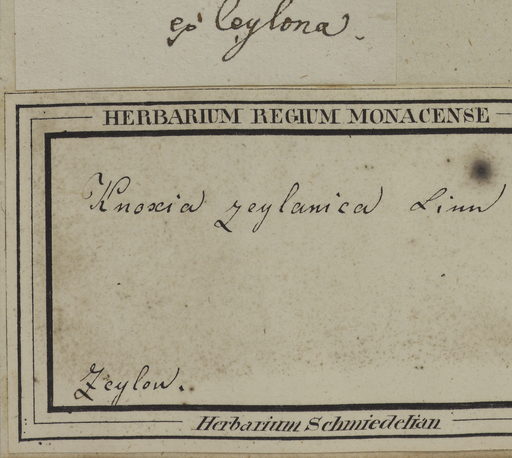 ex Ceylona
HERBARIUM REGIUM MONACENSE
Knoxia zeylanica Linn
Zeylon.
Herbarium Schmiedelian